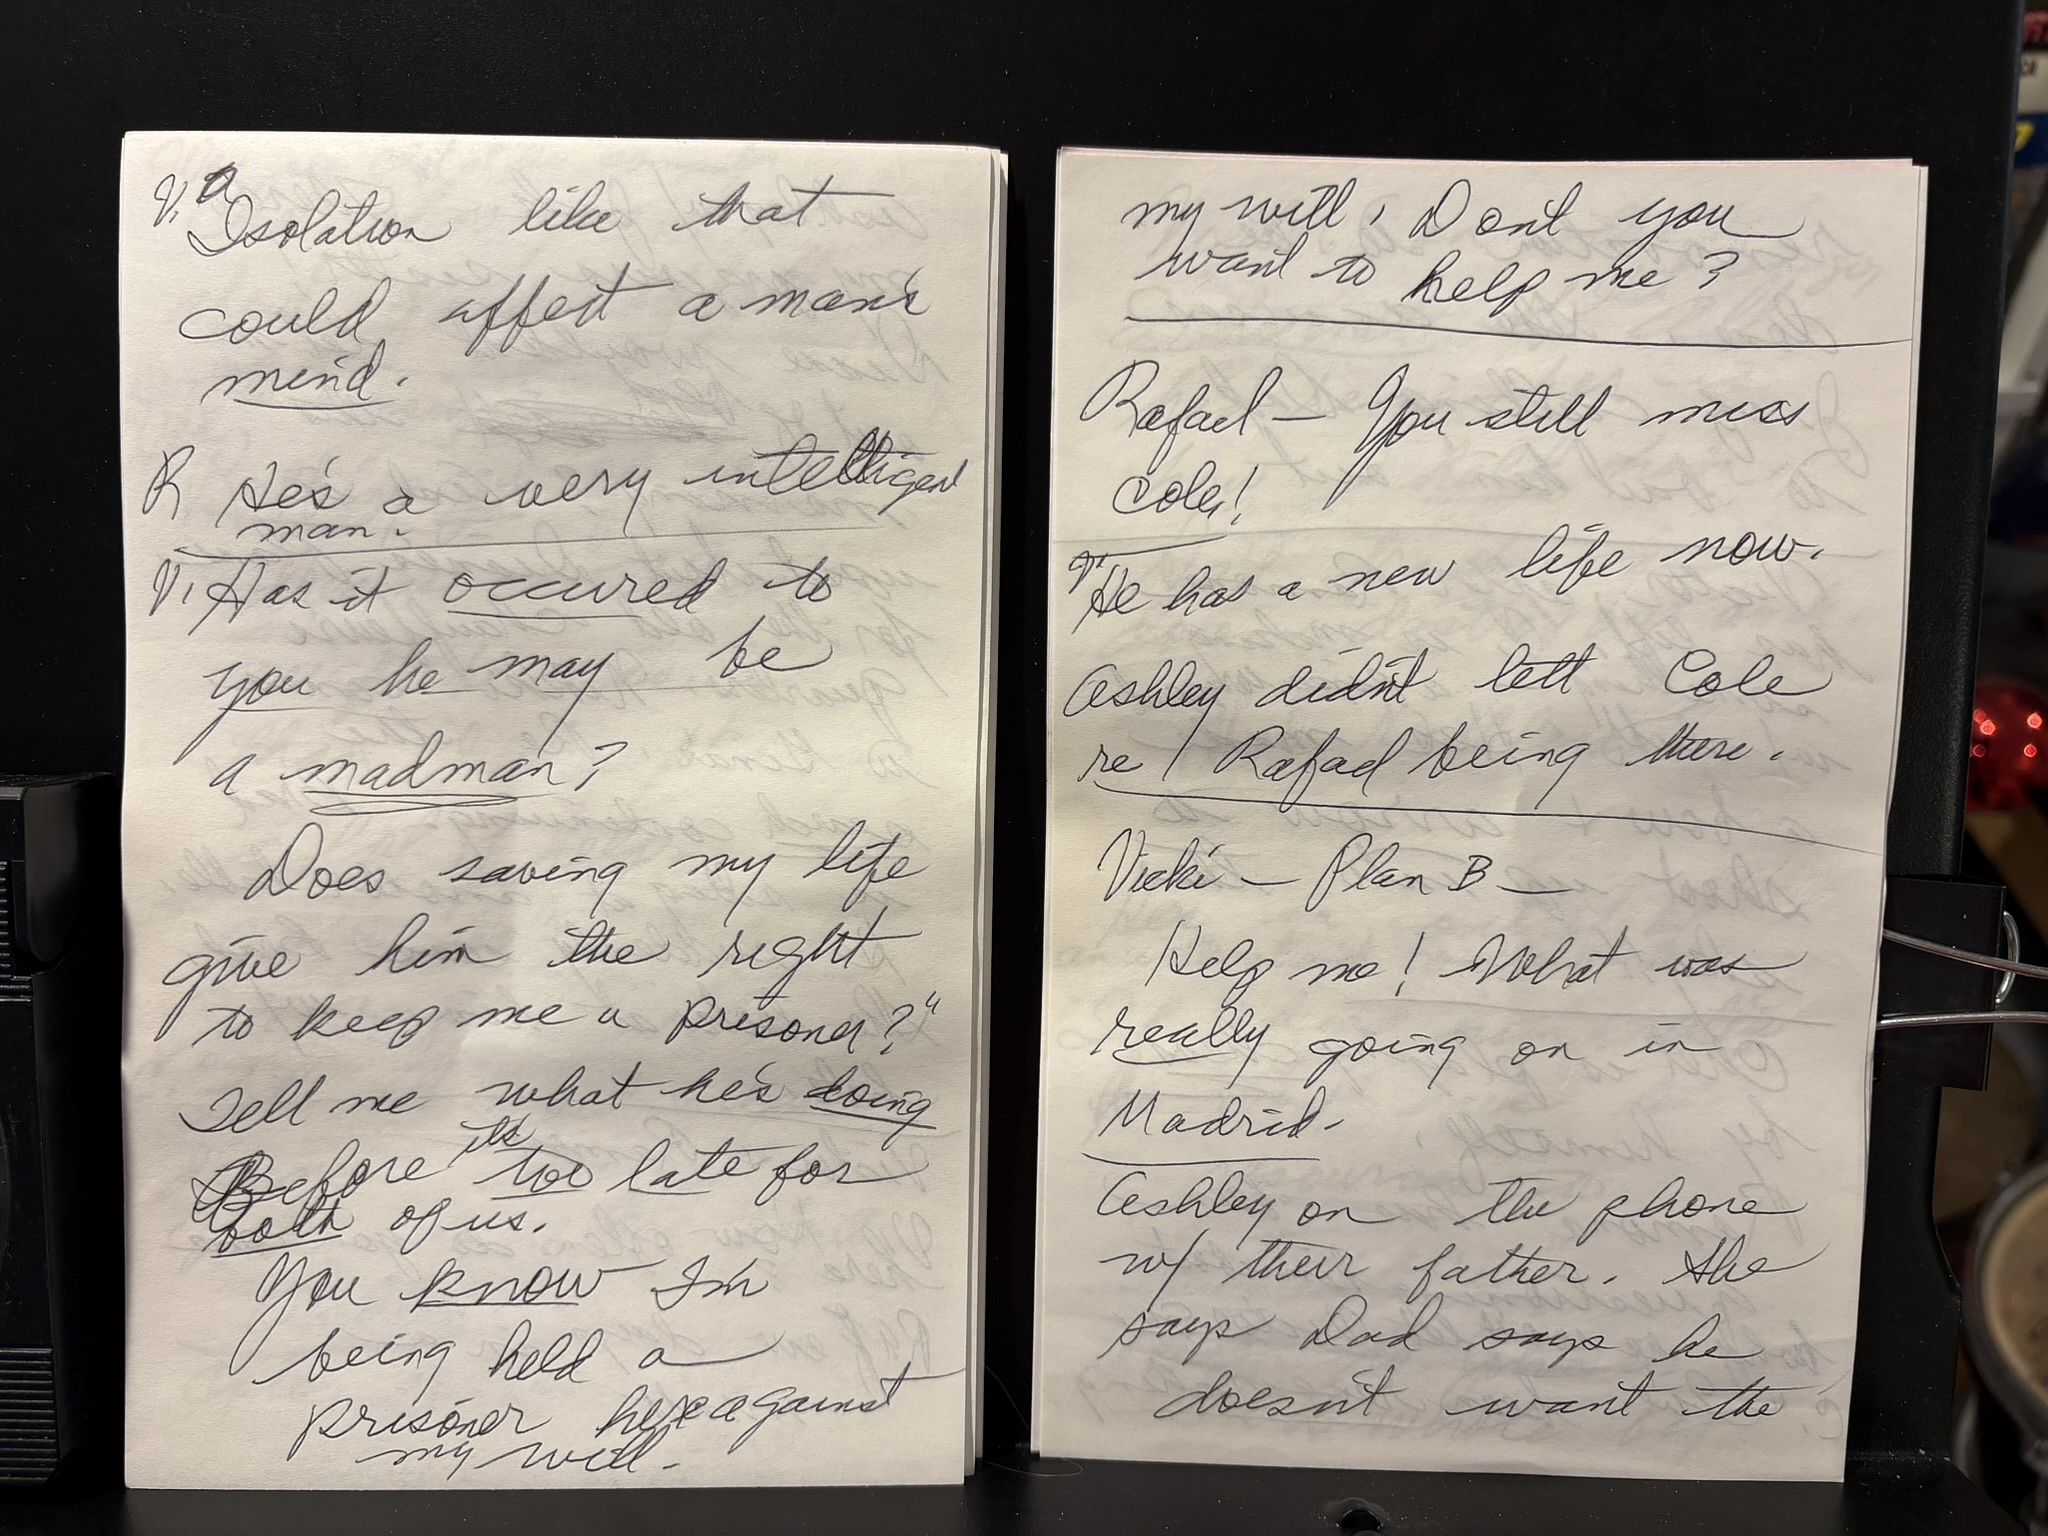 V. Isolation like that
could affect a man's
mind.
R He's a very intelligent
man.
V. Has it occured to
you he may be
a madman?
Does saving my life
give him the right
to keep me a prisoner?"
Tell me what he's doing
Before it's too late for
both of us.
You know I'm
being held a
prisoner here against
my will.
my will. Don't you
want to help me?
Rafael – You still miss
Cole!
V. He has a new life now.
Ashley didn't tell Cole
re/ Rafael being there.
Vicki – Plan B –
Help me! What was
really going on in
Madrid.
Ashley on the phone
w/ their father. She
says Dad says he
doesn't want the